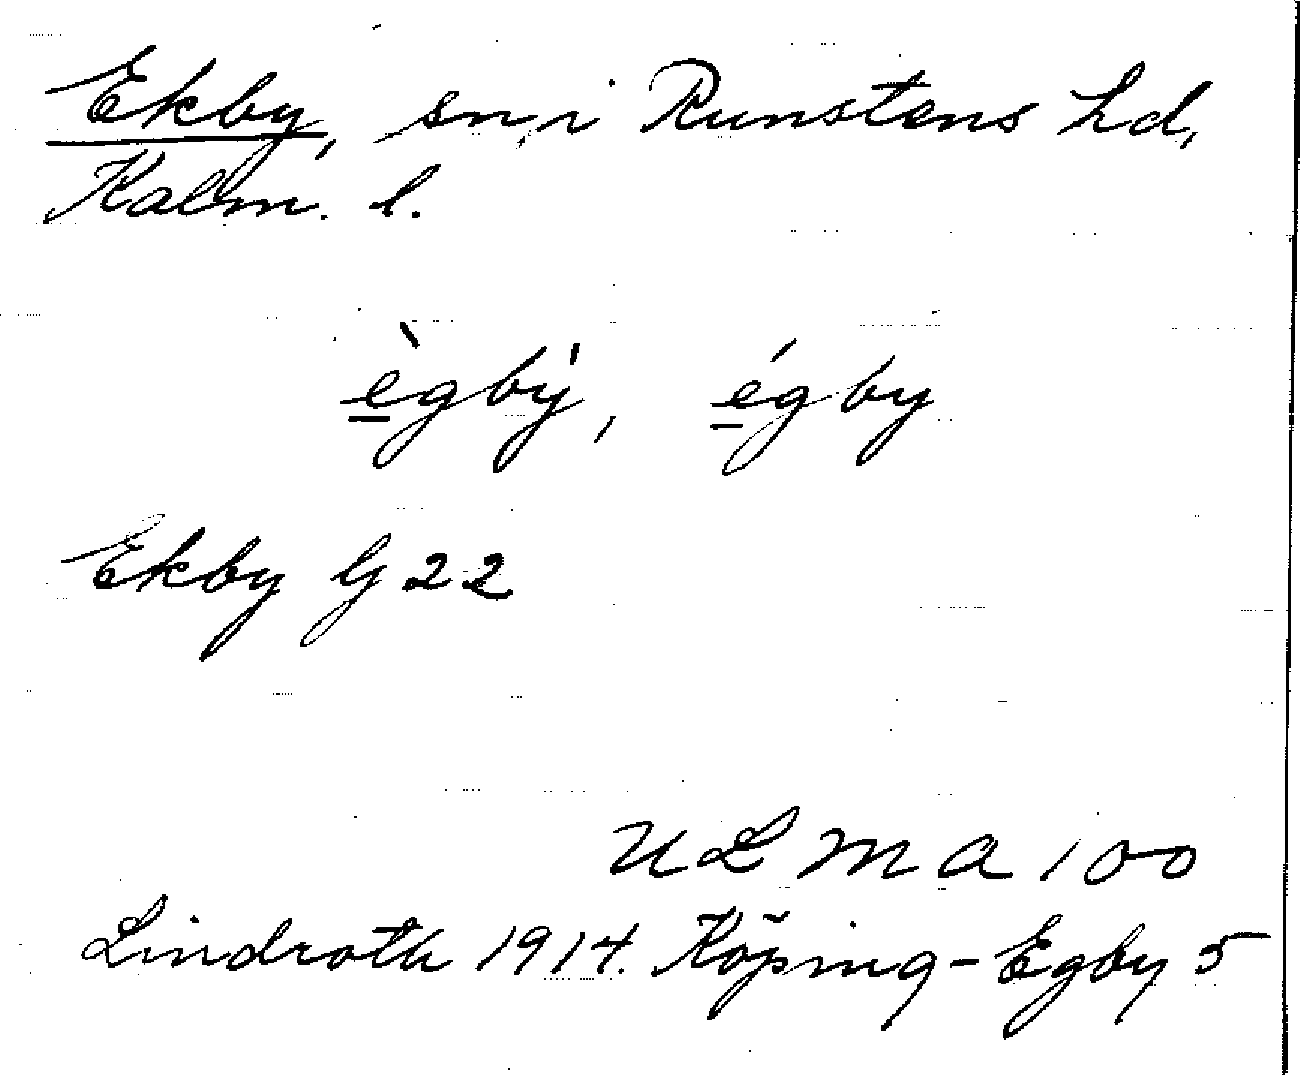 Ekby, sn, i Runstens hd,
Kalm. l.
ègbý, égby
Ekby G 22
ULMA 100
Lindroth 1914. Köping-Egby 5